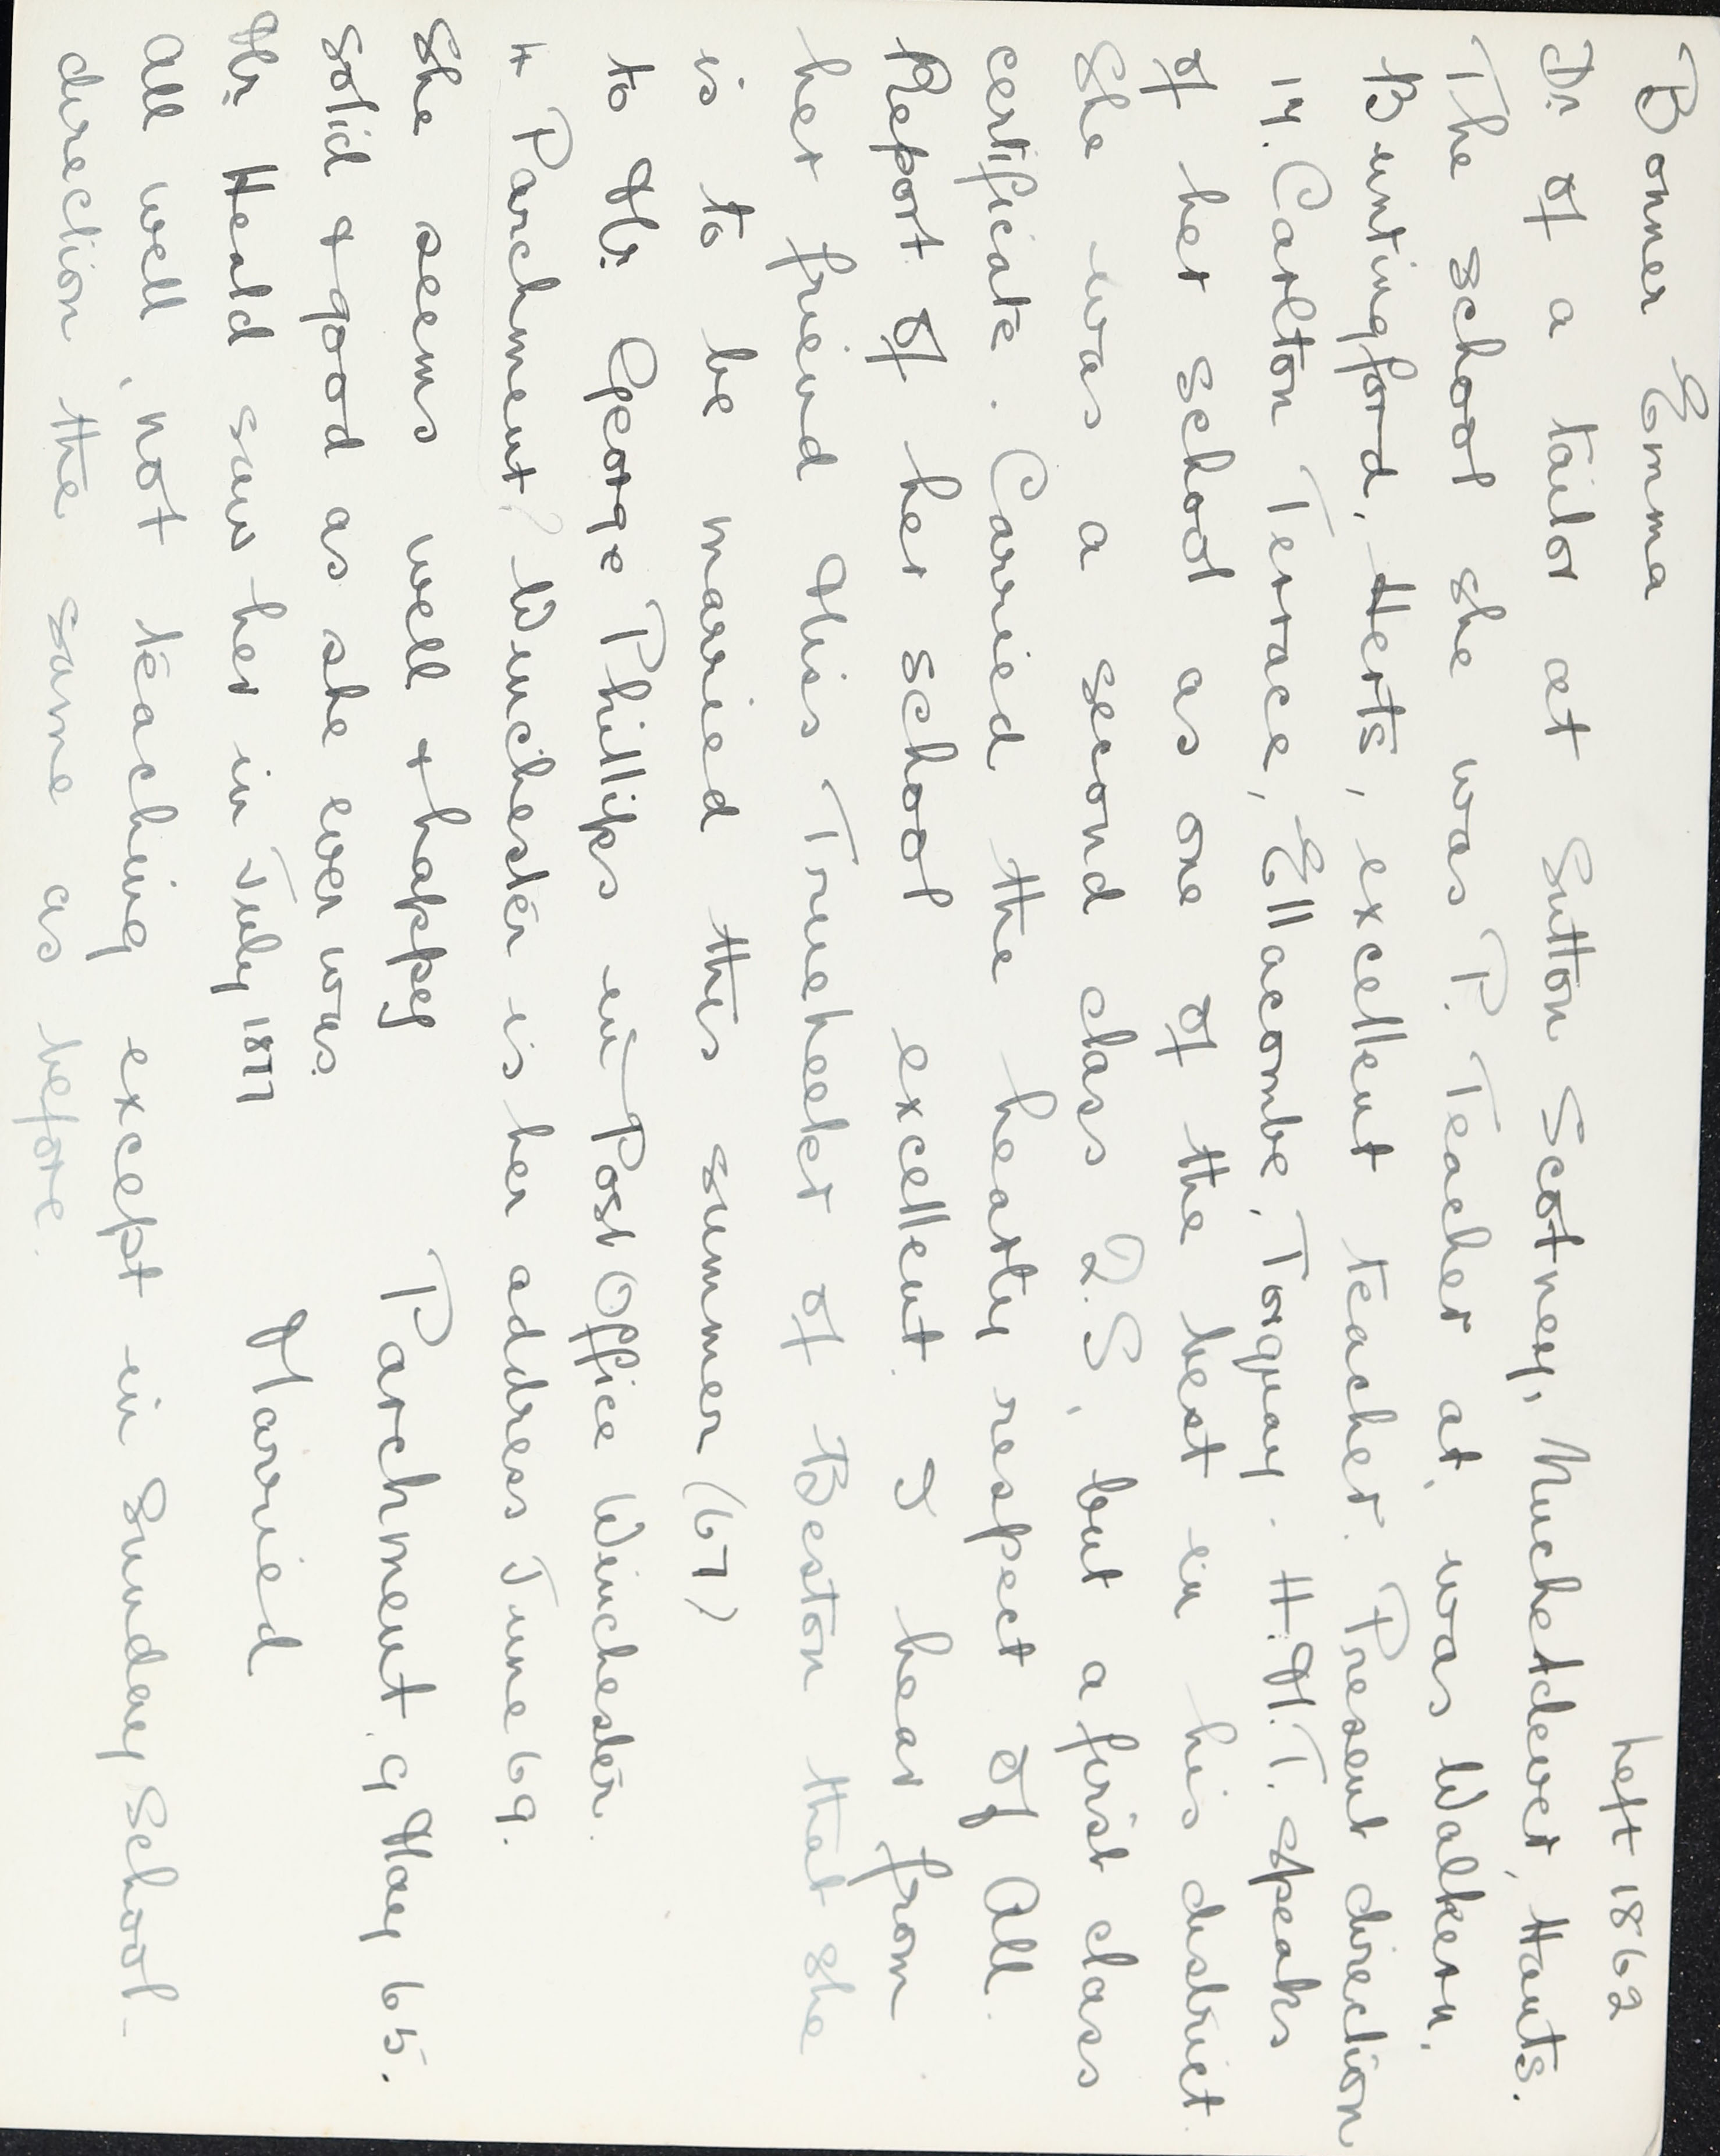 Bonner Emma
Left 1862
Dr of a tailor at Sutton Scotney, Micheldever, Hants.
The school she was P. Teacher at, was Walkern,
Buntingford, Herts, excellent teacher. Present direction
14. Carlton Terrace, Ellacombe, Torquay. H.M.I. speaks
of her school as one of the best in his district.
She was a second class Q.S, but a first class
certificate. Carried the hearty respect of all.
Report of her school excellent. I hear from
her friend Miss Trueheart of Beston that she
is to be married this summer (67)
to Mr. George Phillips in Post Office Winchester.
4 Parchment? Winchester is her address June 69.
She seems well & happy Parchment. 9 May 65.
solid & good as she ever was.
Mr. Heald saw her in July 1877 Married
All well, not teaching except in Sunday School -
direction the same as before.